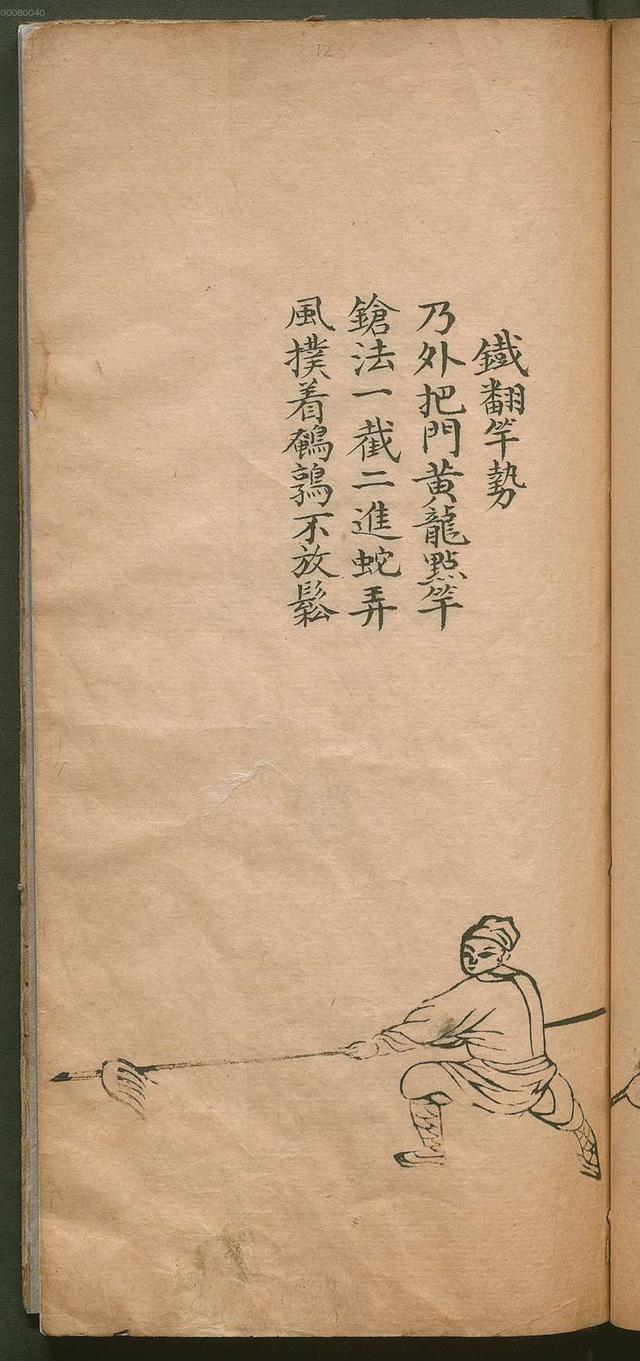 鐵翻竿勢
乃外把門黃龍點竿
鎗法一截二進蛇弄
風撲着鵪鶉不放鬆
12
00080040